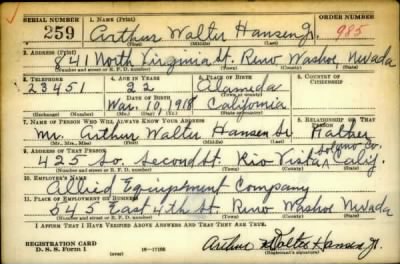 SERIAL NUMBER 1. NAME (Print) ORDER NUMBER
259 Arthur Walter Hansen Jr. 985
(First) (Middle) (Last)
2. ADDRESS (Print)
841 North Virginia St. Reno Washoe Nevada
(Number and street or R. F. D. number) (Town) (County) (State)
3. TELEPHONE 4. AGE IN YEARS 5. PLACE OF BIRTH 6. COUNTRY OF CITIZENSHIP
23451 22 Alameda
DATE OF BIRTH (Town or county)
Mar. 10, 1918 California
(Exchange) (Number) (Mo.) (Day) (Yr.) (State or country)
7. NAME OF PERSON WHO WILL ALWAYS KNOW YOUR ADDRESS 8. RELATIONSHIP OF THAT PERSON
Mr. Arthur Walter Hansen Sr. Father
(Mr., Mrs., Miss) (First) (Middle) (Last)
9. ADDRESS OF THAT PERSON Solano Co.
425 So. Second St. Rio Vista Calif.
(Number and street or R. F. D. number) (Town) (County) (State)
10. EMPLOYER'S NAME
Allied Equipment Company
11. PLACE OF EMPLOYMENT OR BUSINESS
545 East 4th St. Reno Washoe Nevada
(Number and street or R. F. D. number) (Town) (County) (State)
I AFFIRM THAT I HAVE VERIFIED ABOVE ANSWERS AND THAT THEY ARE TRUE.
REGISTRATION CARD
D. S. S. Form 1 (over) Arthur Walter Hansen Jr.
(Registrant's signature)